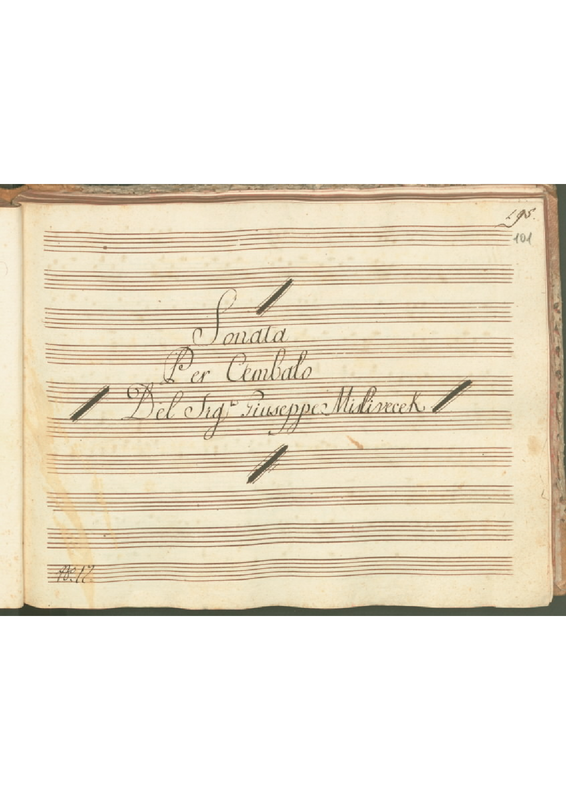 195.
101
Sonata
Per Cembalo
Del Sigr Giuseppe Mislivecek